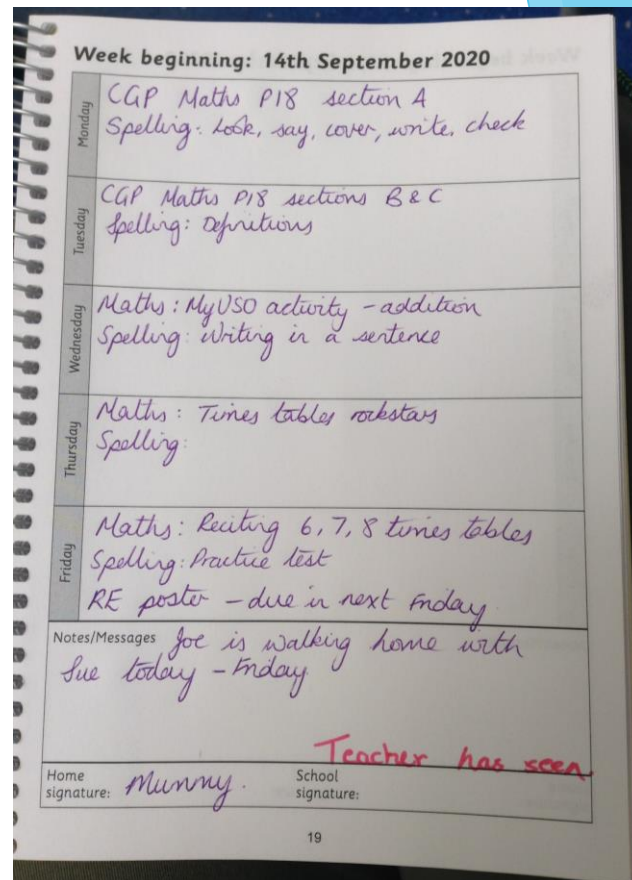 Week beginning: 14th September 2020
Monday
CGP Maths P18 section A
Spelling: Look, say, cover, write, check
Tuesday
CGP Maths P18 sections B & C
Spelling: Definitions
Wednesday
Maths: MyUSO activity - addition
Spelling: Writing in a sentence
Thursday
Maths: Times tables rockstars
Spelling:
Friday
Maths: Reciting 6, 7, 8 times tables
Spelling: Practice test
RE poster - due in next Friday
Notes/Messages Joe is walking home with
Sue today - Friday
Teacher has seen.
Home signature: Mummy.
School signature:
19